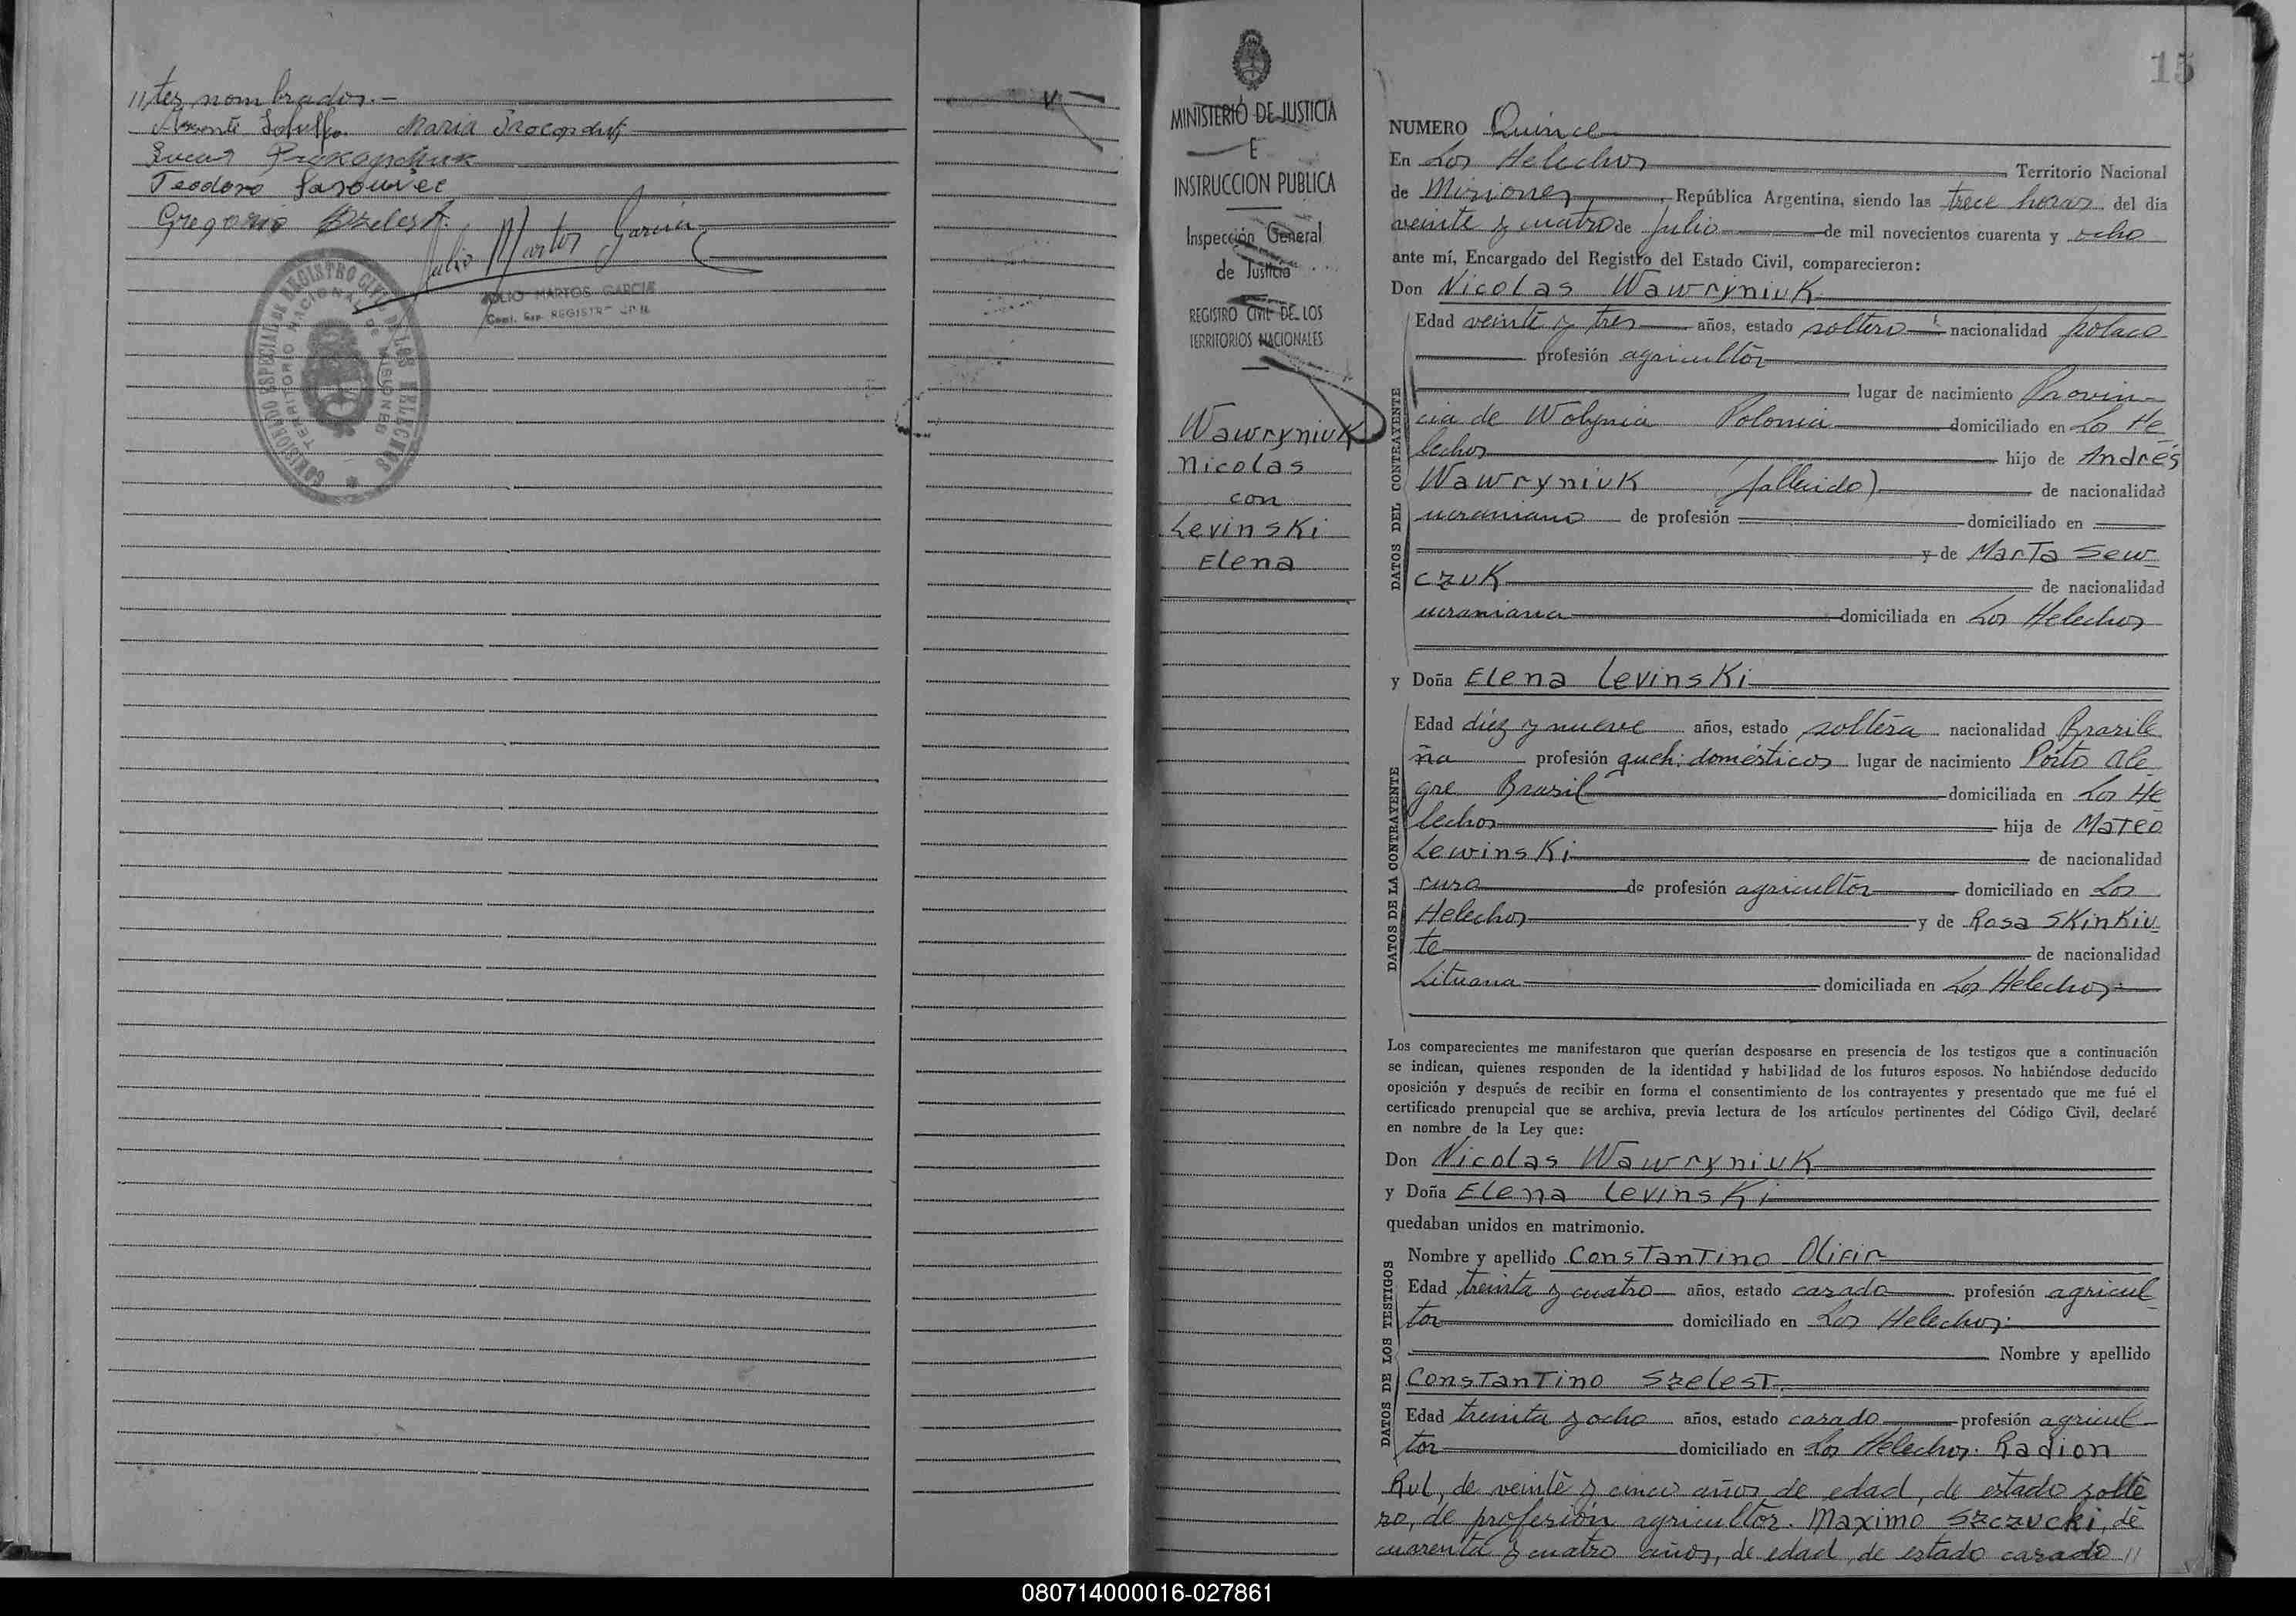 //tes nombrados.-
Maria
Lucas Prokopchuk
Teodoro
Gregorio Szelest.
Julio Martos Garcia
JULIO MARTOS GARCIA
REGISTRO CIVIL
COMISIONADO ESPECIAL DE REGISTRO CIVIL DE LOS HELECHOS
TERRITORIO NACIONAL DE MISIONES
MINISTERIO DE JUSTICIA
E
INSTRUCCION PUBLICA
Inspección General
de Justicia
REGISTRO CIVIL DE LOS
TERRITORIOS NACIONALES
Wawryniuk
Nicolas
con
Levinski
Elena
15
NUMERO Quince
En Los Helechos Territorio Nacional
de Misiones, República Argentina, siendo las trece horas del día
veinte y cuatro de Julio de mil novecientos cuarenta y ocho
ante mí, Encargado del Registro del Estado Civil, comparecieron:
Don Nicolas Wawryniuk
DATOS DEL CONTRAYENTE
Edad veinte y tres años, estado soltero nacionalidad polaco
profesión agricultor
lugar de nacimiento Provin-
cia de Wolynia Polonia domiciliado en Los He
lechos hijo de Andrés
Wawryniuk (fallecido) de nacionalidad
ucraniano de profesión domiciliado en
y de Marta Sew
czuk de nacionalidad
ucraniana domiciliada en Los Helechos
y Doña Elena Levinski
DATOS DE LA CONTRAYENTE
Edad diez y nueve años, estado soltera nacionalidad Brasile
ña profesión queh. domésticos lugar de nacimiento Porto Ale
gre Brasil domiciliada en Los He
lechos hija de Mateo
Lewinski de nacionalidad
ruso de profesión agricultor domiciliado en Los
Helechos y de Rosa Skinkiu
te de nacionalidad
Lituana domiciliada en Los Helechos.
Los comparecientes me manifestaron que querían desposarse en presencia de los testigos que a continuación
se indican, quienes responden de la identidad y habilidad de los futuros esposos. No habiéndose deducido
oposición y después de recibir en forma el consentimiento de los contrayentes y presentado que me fué el
certificado prenupcial que se archiva, previa lectura de los artículos pertinentes del Código Civil, declaré
en nombre de la Ley que:
Don Nicolas Wawryniuk
y Doña Elena Levinski
quedaban unidos en matrimonio.
DATOS DE LOS TESTIGOS
Nombre y apellido Constantino Olifir
Edad treinta y cuatro años, estado casado profesión agricul
tor domiciliado en Los Helechos.
Nombre y apellido
Constantino Szelest.
Edad treinta y ocho años, estado casado profesión agricul
tor domiciliado en Los Helechos. Radion
Rul, de veinte y cinco años de edad, de estado solte
ro, de profesión agricultor. Maximo Szczucki, de
cuarenta y cuatro años, de edad, de estado casado //
080714000016-027861